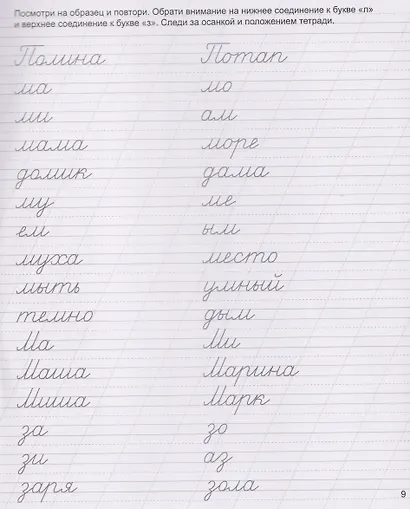 Посмотри на образец и повтори. Обрати внимание на нижнее соединение к букве «л»
и верхнее соединение к букве «з». Следи за осанкой и положением тетради.
Полина Потап
ма мо
ми ам
мама море
домик дама
му ме
ем ым
муха место
мыть умный
темно дым
Ма Ми
Маша Марина
Миша Марк
за зо
зи аз
заря зола
9